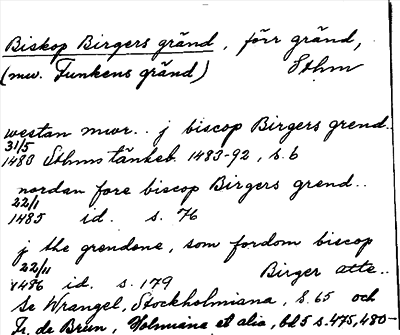 Biskop Birgers gränd, förr gränd,
(nuv. Funkens gränd) Sthm
westan mwr.. j biscop Birgers grend..
31/5
1483 Sthms tänkeb. 1483-92, s. 6
nordan fore biscop Birgers grend..
22/1
1485 id. s. 76
j the grendene, som fordom biscop
22/11 Birger atte..
1486 id. s. 179
Se Wrangel, Stockholmiana, s. 65 och
Fr. de Brun, Holmiana et alia, bd 5 s. 475, 480-